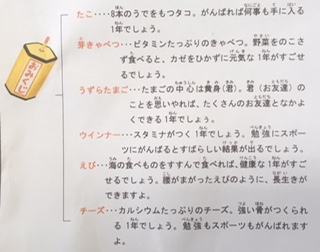 おみくじ
たこ‥‥8本のうでをもつタコ。がんばれば何事も手に入る
1年でしょう。
芽きゃべつ‥‥ビタミンたっぷりのきゃべつ。野菜をのこさ
ず食べると、カゼをひかずに元気な1年がすご
せるでしょう。
うずらたまご‥‥たまごの中心は黄身(君)。君(お友達)
のことを思いやれば、たくさんのお友達となかよ
くできる1年でしょう。
ウインナー‥‥スタミナがつく1年でしょう。勉強にスポー
ツにがんばるとすばらしい結果が出るでしょう。
えび‥‥海の食べものをすすんで食べれば、健康な1年がす
ごせるでしょう。腰がまがったえびのように、長生きが
できますよ。
チーズ‥‥カルシウムたっぷりのチーズ、強い骨がつくられ
る1年でしょう。勉強もスポーツもがんばれます
よ。